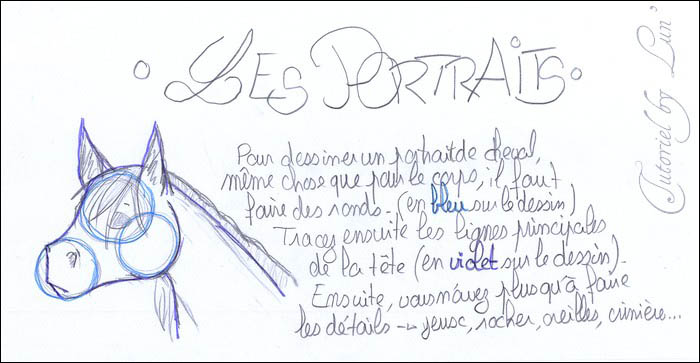 Les Portraits
Tutoriel by Lun'
Pour dessiner un portrait de cheval,
même chose que pour le corps, il faut
faire des ronds. (en bleu sur le dessin)
Tracez ensuite les lignes principales
de la tête (en violet sur le dessin).
Ensuite, vous n'avez plus qu'à faire
les détails → yeux, rocher, oreilles, crinière...